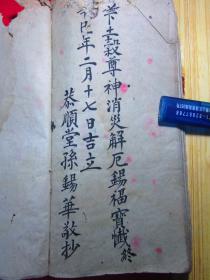 苄土穀尊神消災解厄錫福寶懺終
年二月十七日吉立
恭順堂孫錫華敬抄